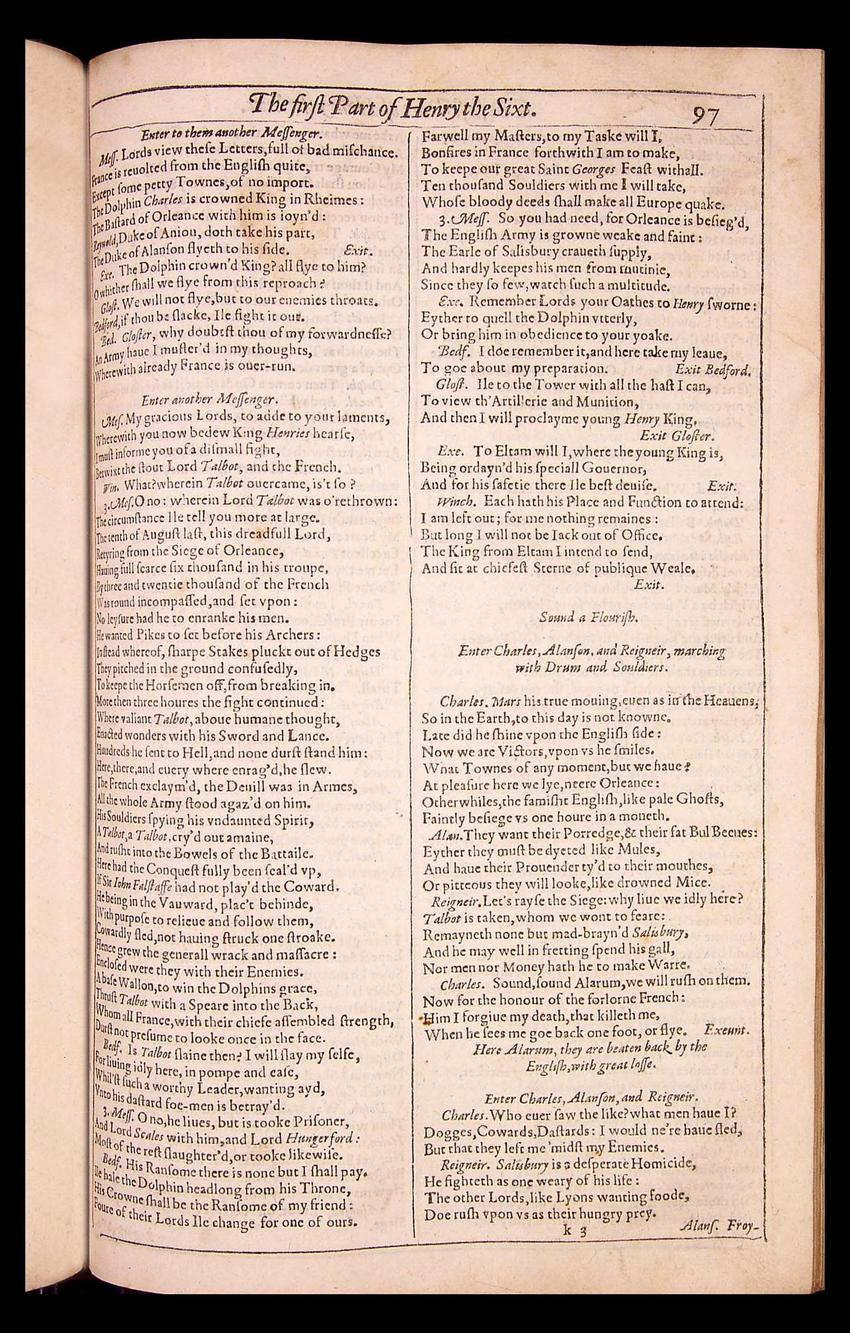 The first Part of Henry the Sixt.
97
Enter to them another Messenger.
Mess. Lords view these Letters,full of bad mischance.
France is reuolted from the English quite,
Except some petty Townes,of no import.
The Dolphin Charles is crowned King in Rheimes:
The Bastard of Orleance with him is ioyn'd:
Reynold,Duke of Aniou, doth take his part,
The Duke of Alanson flyeth to his side. Exit.
Exe. The Dolphin crown'd King? all flye to him?
O whither shall we flye from this reproach?
Glost. We will not flye,but to our enemies throats.
Bedford,if thou be slacke, Ile fight it out.
Bed. Gloster, why doubtst thou of my forwardnesse?
An Army haue I muster'd in my thoughts,
Wherewith already France is ouer-run.
Enter another Messenger.
Mes. My gracious Lords, to adde to your laments,
Wherewith you now bedew King Henries hearse,
I must informe you of a dismall fight,
Betwixt the stout Lord Talbot, and the French.
Win. What?wherein Talbot ouercame, is't so?
3.Mes.O no: wherein Lord Talbot was o'rethrown:
The circumstance Ile tell you more at large.
The tenth of August last, this dreadfull Lord,
Retyring from the Siege of Orleance,
Hauing full scarce six thousand in his troupe,
By three and twentie thousand of the French
Was round incompassed,and set vpon:
No leysure had he to enranke his men.
He wanted Pikes to set before his Archers:
In stead whereof, sharpe Stakes pluckt out of Hedges
They pitched in the ground confusedly,
To keepe the Horsemen off,from breaking in.
More then three houres the fight continued:
Where valiant Talbot, aboue humane thought,
Enacted wonders with his Sword and Lance.
Hundreds he sent to Hell,and none durst stand him:
Here,there,and euery where enrag'd,he slew.
The French exclaym'd, the Deuill was in Armes,
All the whole Army stood agaz'd on him.
His Souldiers spying his vndaunted Spirit,
A Talbot,a Talbot,cry'd out amaine,
And rusht into the Bowels of the Battaile.
Here had the Conquest fully been seal'd vp,
If Sir Iohn Falstaffe had not play'd the Coward.
He being in the Vauward, plac't behinde,
With purpose to relieue and follow them,
Cowardly fled,not hauing struck one stroake.
Hence grew the generall wrack and massacre:
Enclosed were they with their Enemies.
A base Wallon,to win the Dolphins grace,
Thrust Talbot with a Speare into the Back,
Whom all France,with their chiefe assembled strength,
Durst not presume to looke once in the face.
Bedf. Is Talbot slaine then? I will slay my selfe,
For liuing idly here, in pompe and ease,
Whil'st such a worthy Leader,wanting ayd,
Vnto his dastard foe-men is betray'd.
3. Mess. O no,he liues, but is tooke Prisoner,
And Lord Scales with him,and Lord Hungerford:
Most of the rest slaughter'd,or tooke likewise.
Bedf. His Ransome there is none but I shall pay.
Ile hale the Dolphin headlong from his Throne,
His Crowne shall be the Ransome of my friend:
Foure of their Lords Ile change for one of ours.
Farwell my Masters,to my Taske will I,
Bonfires in France forthwith I am to make,
To keepe our great Saint Georges Feast withall.
Ten thousand Souldiers with me I will take,
Whose bloody deeds shall make all Europe quake.
3.Mess. So you had need, for Orleance is besieg'd,
The English Army is growne weake and faint:
The Earle of Salisbury craueth supply,
And hardly keepes his men from mutinie,
Since they so few,watch such a multitude.
Exe. Remember Lords your Oathes to Henry sworne:
Eyther to quell the Dolphin vtterly,
Or bring him in obedience to your yoake.
Bedf. I doe remember it,and here take my leaue,
To goe about my preparation. Exit Bedford.
Glost. Ile to the Tower with all the hast I can,
To view th'Artillerie and Munition,
And then I will proclayme young Henry King,
Exit Gloster.
Exe. To Eltam will I,where the young King is,
Being ordayn'd his speciall Gouernor,
And for his safetie there Ile best deuise. Exit.
Winch. Each hath his Place and Function to attend:
I am left out; for me nothing remaines:
But long I will not be Iack out of Office.
The King from Eltam I intend to send,
And sit at chiefest Sterne of publique Weale.
Exit.
Sound a Flourish.
Enter Charles, Alanson, and Reigneir, marching
with Drum and Souldiers.
Charles. Mars his true mouing,euen as in the Heauens,
So in the Earth,to this day is not knowne.
Late did he shine vpon the English side:
Now we are Victors,vpon vs he smiles.
What Townes of any moment,but we haue?
At pleasure here we lye,neere Orleance:
Otherwhiles,the famisht English,like pale Ghosts,
Faintly besiege vs one houre in a moneth.
Alan.They want their Porredge,& their fat Bul Beeues:
Eyther they must be dyeted like Mules,
And haue their Prouender ty'd to their mouthes,
Or pitteous they will looke,like drowned Mice.
Reigneir.Let's rayse the Siege:why liue we idly here?
Talbot is taken,whom we wont to feare:
Remayneth none but mad-brayn'd Salisbury,
And he may well in fretting spend his gall,
Nor men nor Money hath he to make Warre.
Charles. Sound,sound Alarum,we will rush on them.
Now for the honour of the forlorne French:
Him I forgiue my death,that killeth me,
When he sees me goe back one foot, or flye. Exeunt.
Here Alarum, they are beaten back by the
English,with great losse.
Enter Charles, Alanson, and Reigneir.
Charles.Who euer saw the like?what men haue I?
Dogges,Cowards,Dastards: I would ne're haue fled,
But that they left me 'midst my Enemies.
Reigneir. Salisbury is a desperate Homicide,
He fighteth as one weary of his life:
The other Lords,like Lyons wanting foode,
Doe rush vpon vs as their hungry prey.
k 3
Alans. Froy-